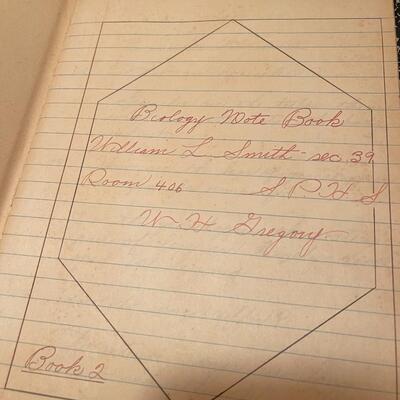 Biology Note Book
William L. Smith - sec. 39
Room 406 S P H S
W. H. Gregory
Book 2